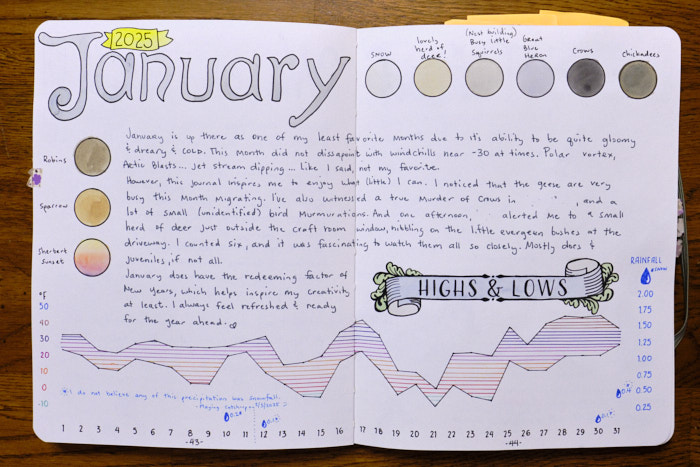 2025
January
SNOW
lovely herd of deer!
(Nest building) Busy little Squirrels
Great Blue Heron
Crows
Chickadees
Robins
Sparrow
Sherbert Sunset
January is up there as one of my least favorite months due to it's ability to be quite gloomy
& dreary & COLD. This month did not dissapoint with windchills near -30 at times. Polar vortex,
Actic Blasts... Jet stream dipping... Like I said, not my favorite.
However, this journal inspires me to enjoy what (little) I can. I noticed that the geese are very
busy this month migrating. I've also witnessed a true Murder of Crows in , and a
lot of small (unidentified) bird Murmurations. And one afternoon, alerted me to a small
herd of deer just outside the craft room window, nibbling on the little evergeen bushes at the
driveway. I counted six, and it was fascinating to watch them all so closely. Mostly does &
juveniles, if not all.
January does have the redeeming factor of
New Years, which helps inspire my creativity
at least. I always feel refreshed & ready
for the year ahead.
HIGHS & LOWS
RAINFALL
2.00
1.75
1.50
1.25
1.00
0.75
0.50
0.25
°F
50
40
30
20
10
0
-10
I do not believe any of this precipitation was snowfall.
1 2 3 4 5 6 7 8 9 10 11 12 13 14 15 16 17 18 19 20 21 22 23 24 25 26 27 28 29 30 31
-43-
-44-